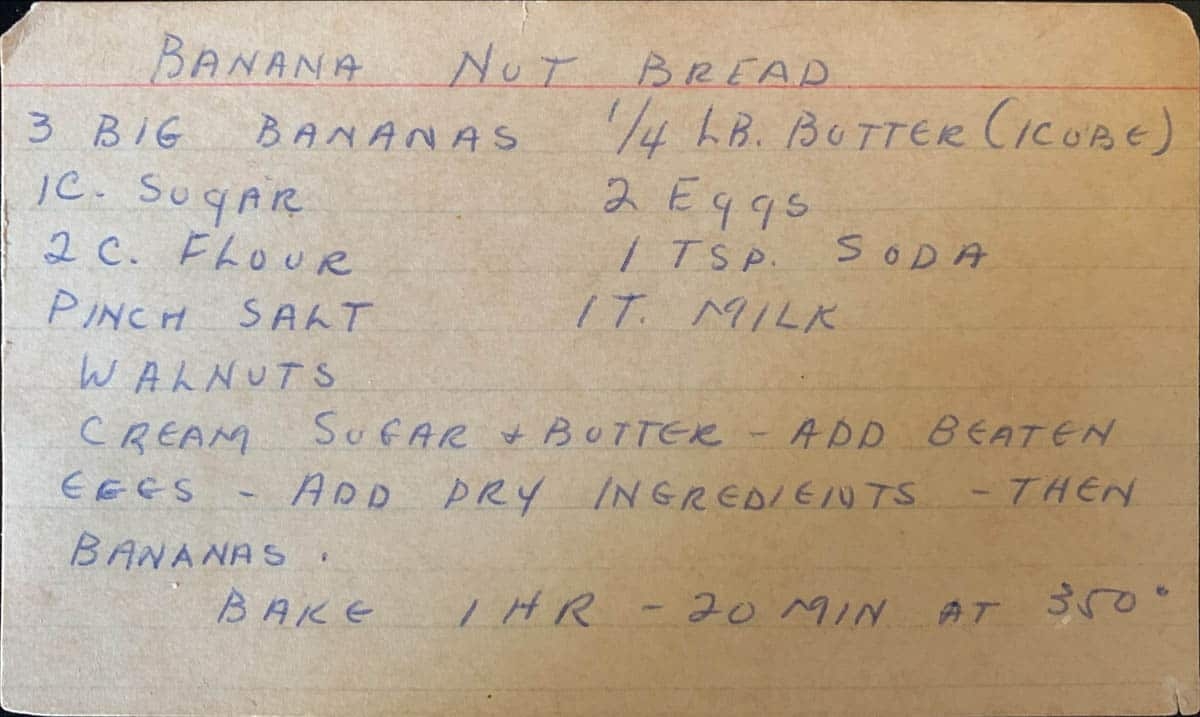 BANANA NUT BREAD
3 BIG BANANAS 1/4 LB. BUTTER (1CUBE)
1C. SUGAR 2 EGGS
2 C. FLOUR 1 TSP. SODA
PINCH SALT 1 T. MILK
WALNUTS
CREAM SUGAR & BUTTER - ADD BEATEN
EGGS - ADD DRY INGREDIENTS - THEN
BANANAS.
BAKE 1 HR - 20 MIN AT 350°